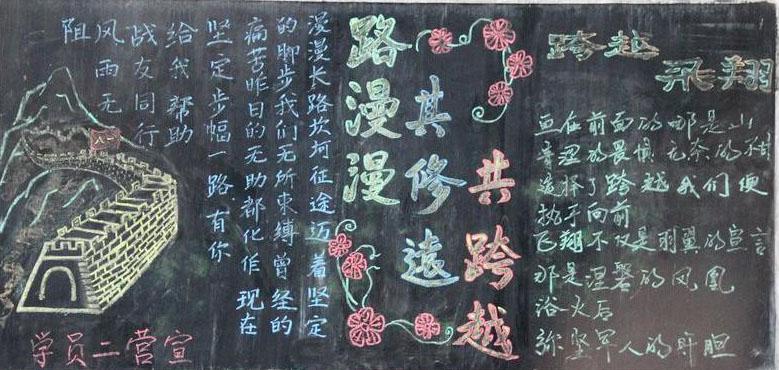 跨越
飛翔
在前面的那是山
理的畏惧无奈的
选择了跨越我们便
执手向前
飞翔不仅是羽翼的宣言
那是涅磐的凤凰
浴火后
弥坚军人的肝胆
路漫漫
其修遠
共跨越
漫漫长路坎坷征途迈着坚定
的脚步我们无所束缚曾经的
痛苦昨日的无助都化作现在
坚定步幅一路有你
给我帮助
战友同行
风雨无
阻
学员二营宣